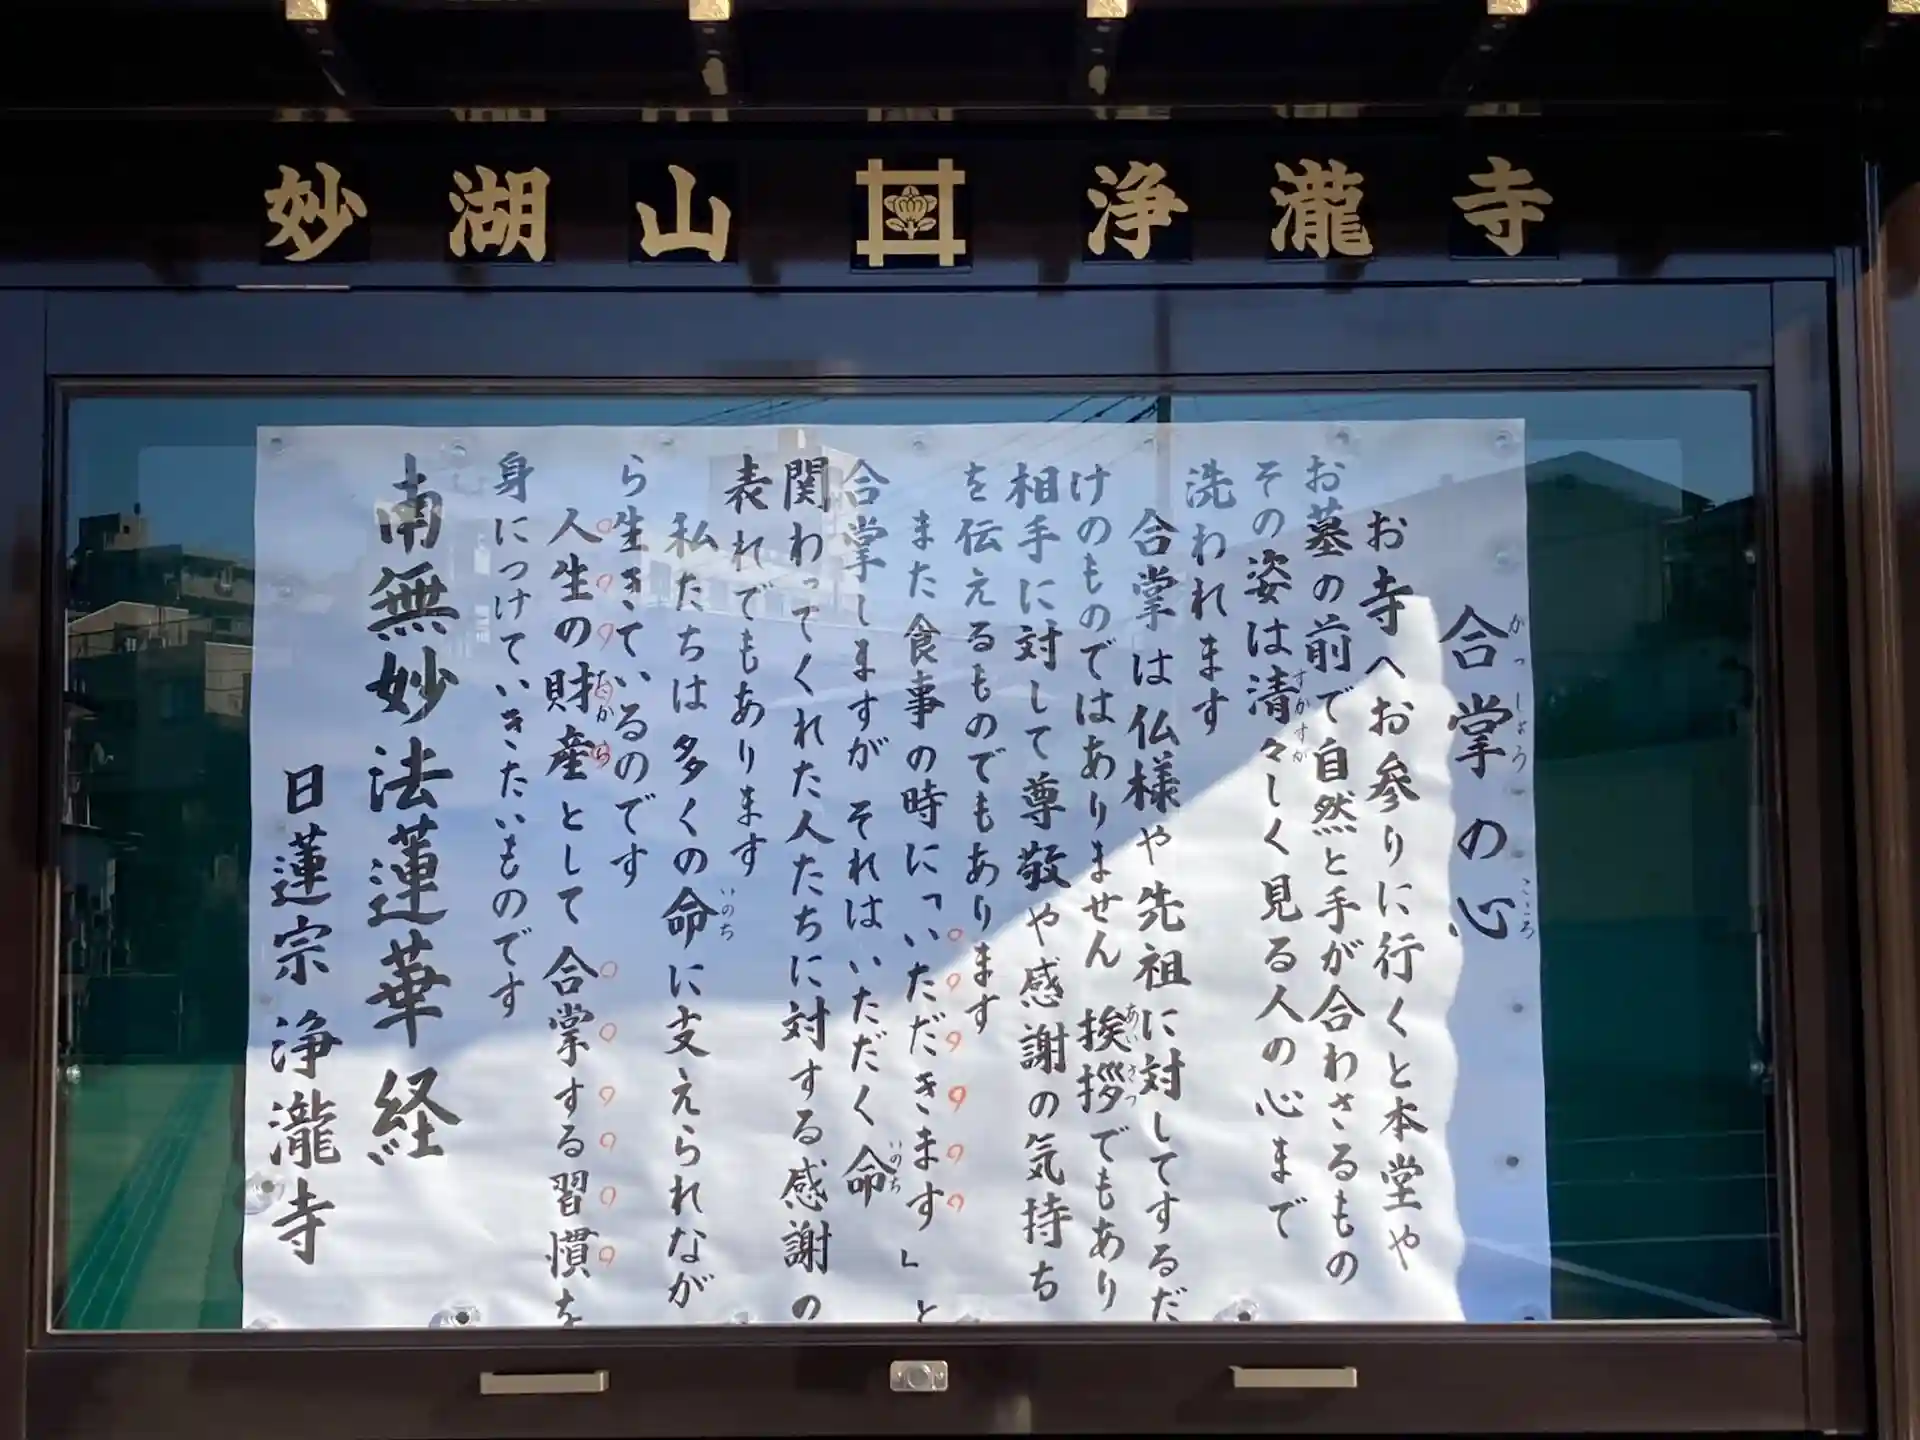 妙湖山 浄瀧寺
合掌の心
お寺へお参りに行くと本堂や
お墓の前で自然と手が合わさるもの
その姿は清々しく見る人の心まで
洗われます
合掌は仏様や先祖に対してするだ
けのものではありません 挨拶でもあり
相手に対して尊敬や感謝の気持ち
を伝えるものでもあります
また食事の時に「いただきます」と
合掌しますが それはいただく命
関わってくれた人たちに対する感謝の
表れでもあります
私たちは多くの命に支えられなが
ら生きているのです
人生の財産として 合掌する習慣を
身につけていきたいものです
南無妙法蓮華経
日蓮宗 浄瀧寺